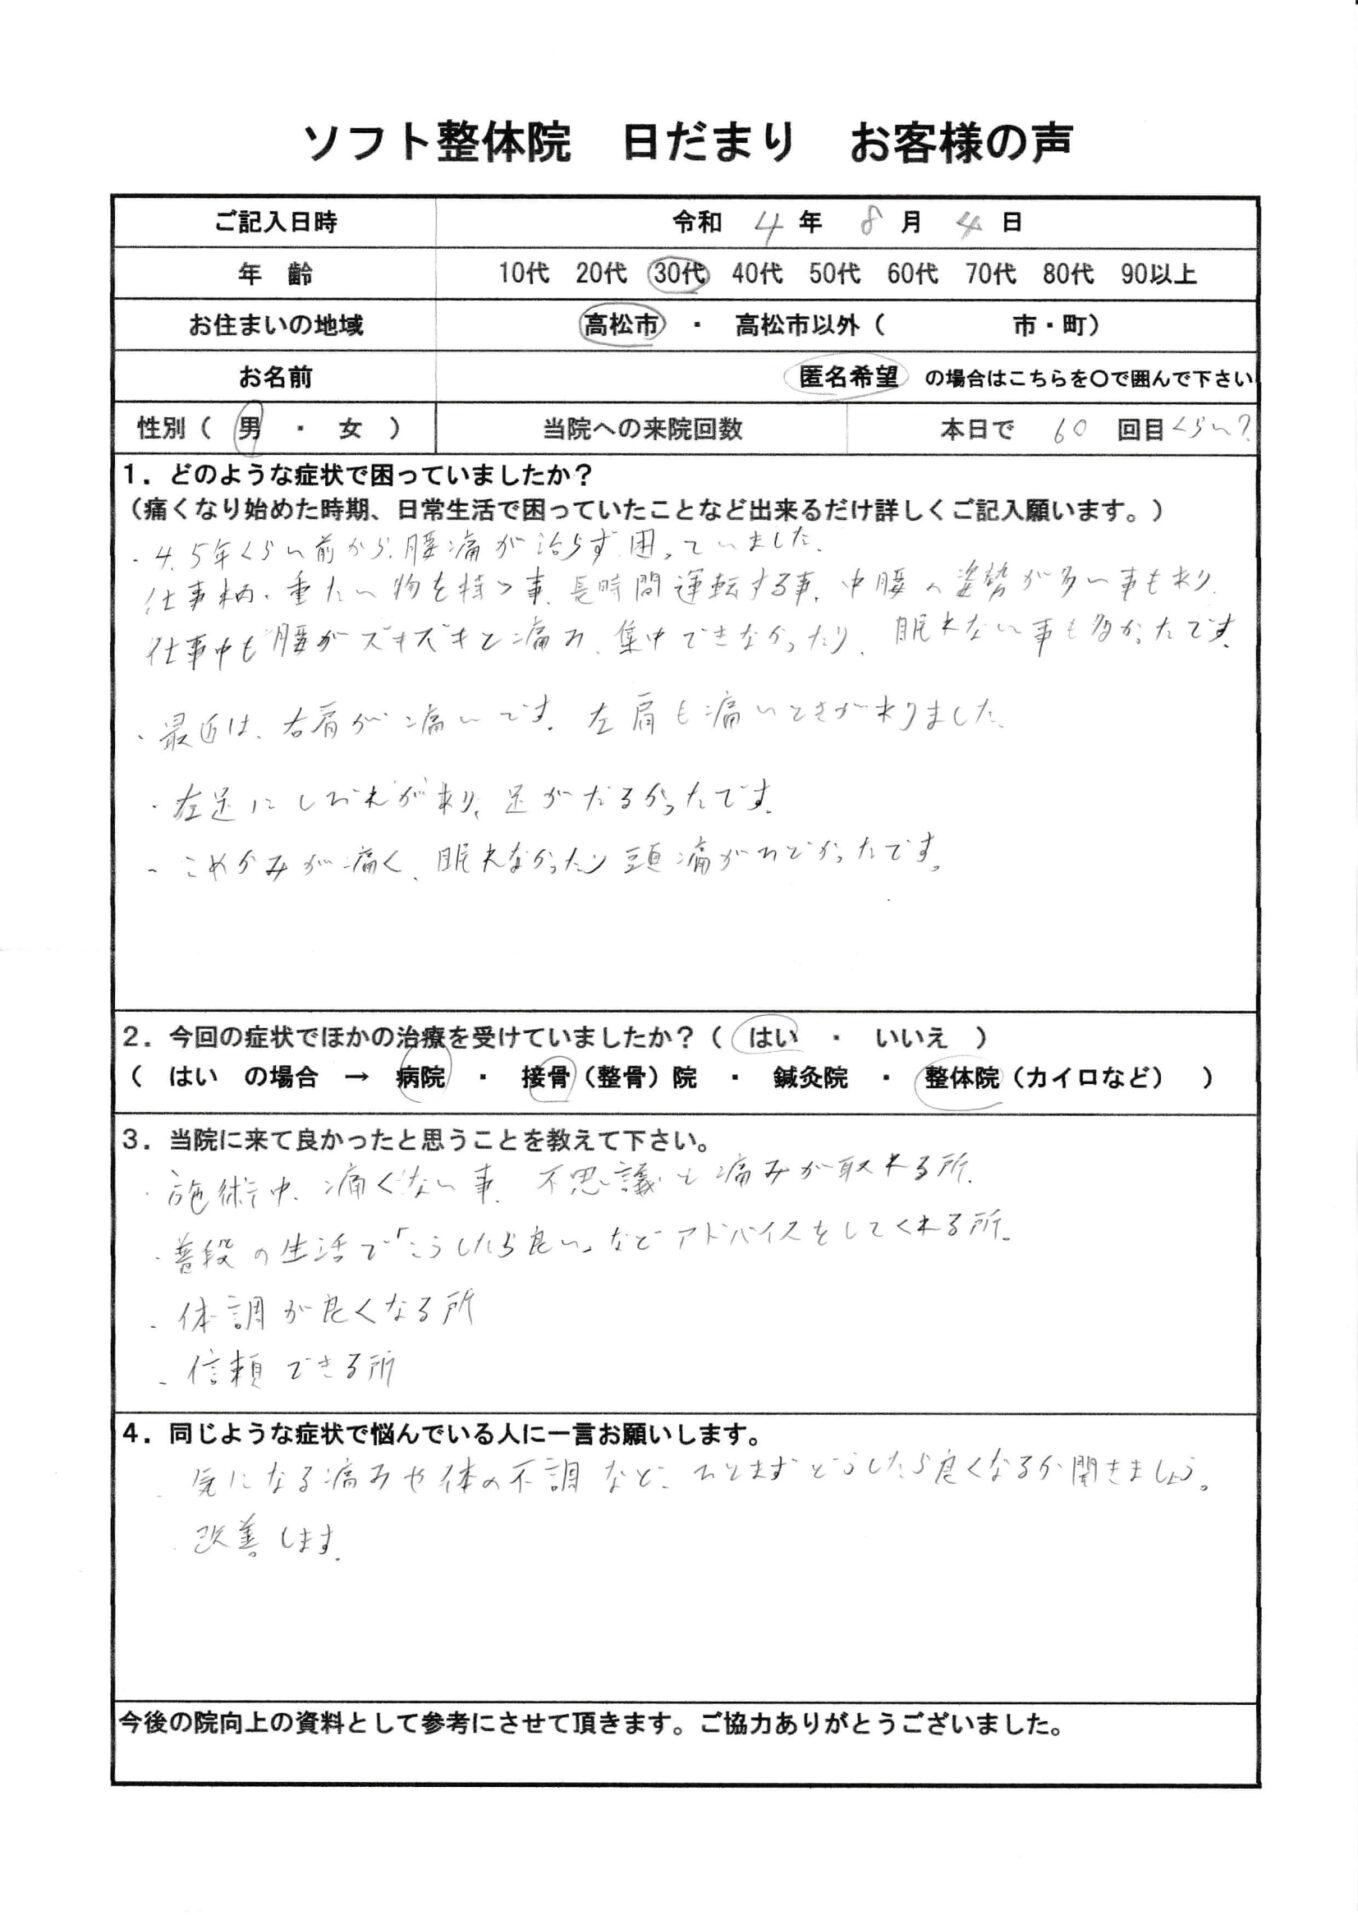 ソフト整体院 日だまり お客様の声
ご記入日時 令和 4 年 8 月 4 日
年 齢 10代 20代 30代 40代 50代 60代 70代 80代 90以上
お住まいの地域 高松市 ・ 高松市以外( 市・町)
お名前 匿名希望 の場合はこちらを〇で囲んで下さい
性別( 男 ・ 女 ) 当院への来院回数 本日で 60 回目くらい?
1.どのような症状で困っていましたか?
(痛くなり始めた時期、日常生活で困っていたことなど出来るだけ詳しくご記入願います。)
・4.5年くらい前から腰痛が治らず困っていました。
仕事柄、重たい物を持つ事、長時間運転する事、中腰の姿勢が多い事もあり、
仕事中も腰がズキズキと痛み、集中できなかったり、眠れない事も多かったです。
・最近は、右肩が痛いです。左肩も痛いときがありました。
・左足にしびれがあり、足がだるかったです。
・こめかみが痛く、眠れなかったり頭痛がひどかったです。
2.今回の症状でほかの治療を受けていましたか?( はい ・ いいえ )
( はい の場合 → 病院 ・ 接骨(整骨)院 ・ 鍼灸院 ・ 整体院(カイロなど) )
3.当院に来て良かったと思うことを教えて下さい。
・施術中、痛くない事、不思議と痛みが取れる所。
・普段の生活で「こうしたら良い」などアドバイスをしてくれる所。
・体調が良くなる所
・信頼できる所
4.同じような症状で悩んでいる人に一言お願いします。
・気になる痛みや体の不調など、ひとまずどうしたら良くなるか聞きましょう。
・改善します。
今後の院向上の資料として参考にさせて頂きます。ご協力ありがとうございました。